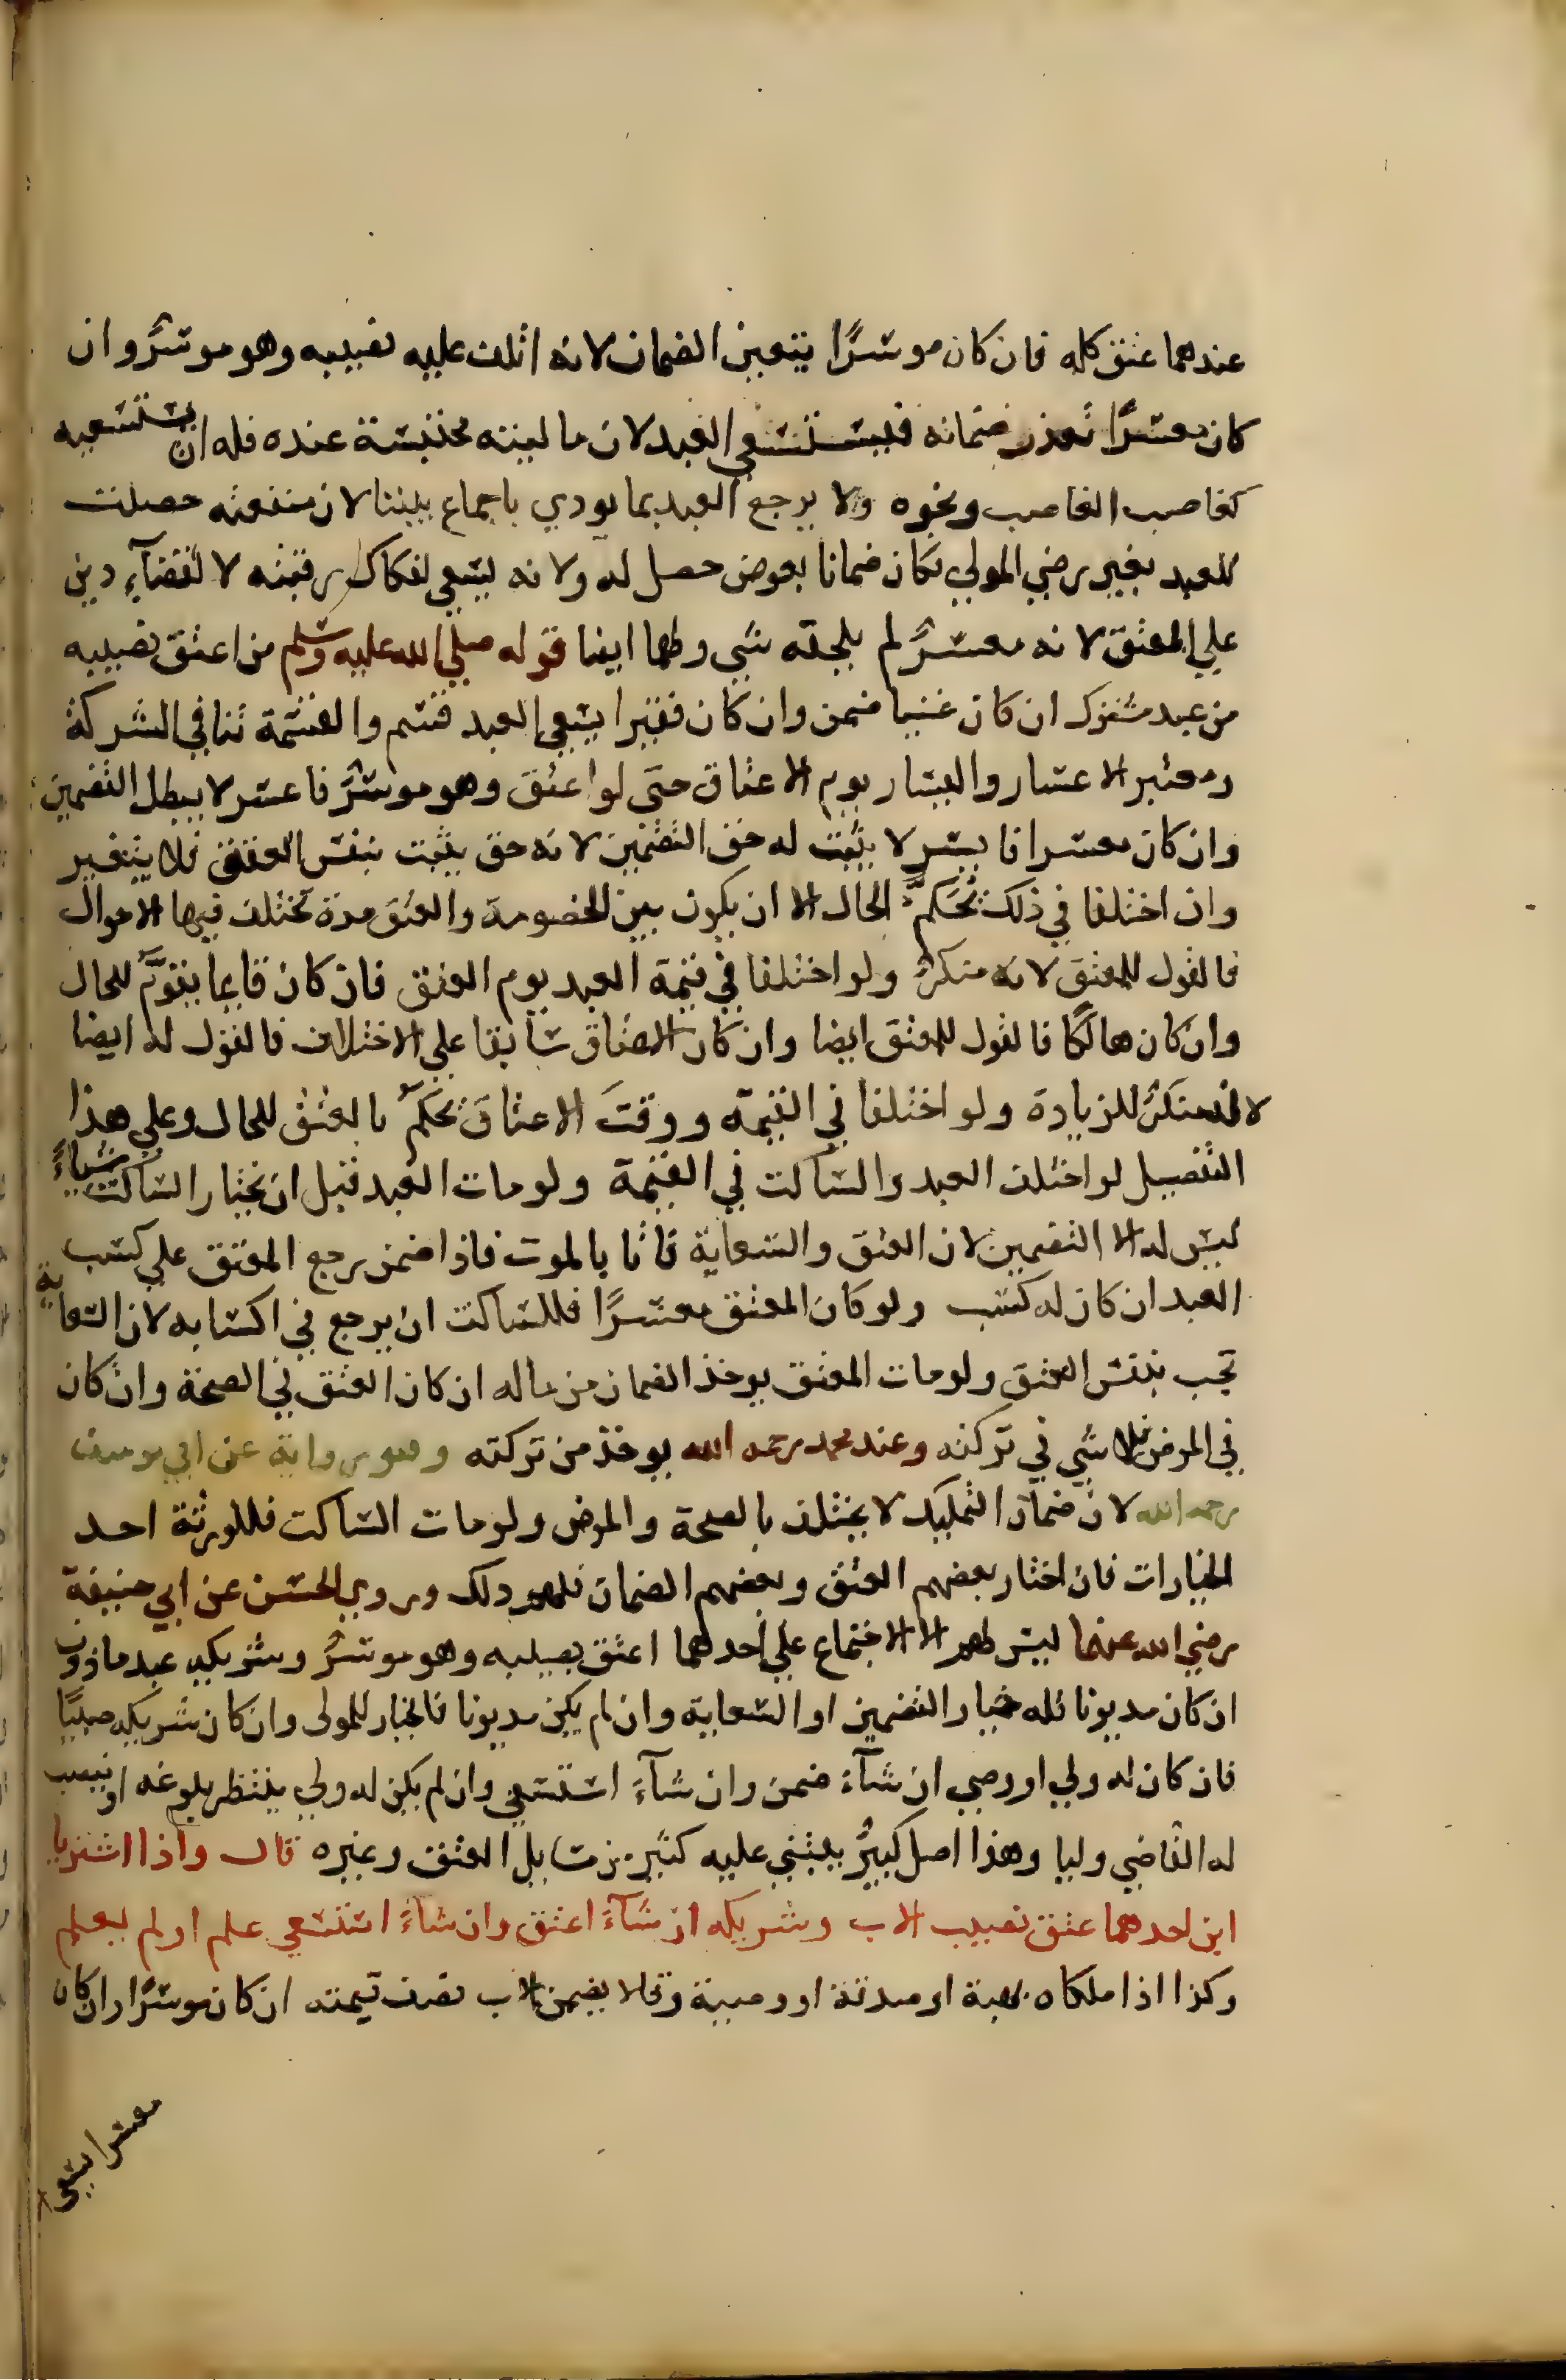 عندهما عتق كله فان كان موسرًا يتعين الضمان لانه اتلف عليه نصيبه وهو موسرٌ وان
كان معسرًا تعذر ضمانه فيستسعي العبد لان ماليته محتبسة عنده فله ان يستسعيه
كغاصب الغاصب ونحوه ولا يرجع العبد بما يودي باجماع بيننا لان منفعته حصلت
للعبد بغير رضي المولي فكان ضمانا بعوض حصل له ولانه يسعي لفكاك رقبته لا لقضآء دين
علي المعتق لانه معسرٌ لم يلحقه شي ولهما ايضا قوله صلي الله عليه وسلم من اعتق نصيبه
من عبد مشترك ان كان غنيا ضمن وان كان فقيرا يسعي العبد قسم والقسمة تنافي الشركة
ومعتبر الاعسار واليسار يوم الاعتاق حتى لو اعتق وهو موسرٌ فاعسر لا يبطل التضمين
وان كان معسرا فايسر لا يثبت له حق التضمين لانه حق يثبت بنفس العتق فلا يتغير
وان اختلفا في ذلك تحكم الحال الا ان يكون بين الخصومة والعتق مدة تختلف فيها الاحوال
فالقول للمعتق لانه منكرٌ ولو اختلفا في قيمة العبد يوم العتق فان كان قايما يقوّم للحال
وان كان هالكا فالقول للمعتق ايضا وان كان العتاق سابقا علي الاختلاف فالقول له ايضا
لانه منكرٌ للزيادة ولو اختلفا في القيمة ووقت الاعتاق يحكم بالعتق للحال وعلي هذا
التفصيل لو اختلف العبد والساكت في القيمة ولو مات العبد قبل ان يختار الساكت شياءً
ليس له الا التضمين لان العتق والسعاية فاتا بالموت فاذا ضمن رجع المعتق علي كسب
العبد ان كان له كسب ولو كان المعتق معسرًا فللساكت ان يرجع في اكتسابه لان السعاية
تجب بنفس العتق ولو مات المعتق يوخذ الضمان من ماله ان كان العتق في الصحة وان كان
في المرض فلا شي في تركته وعند محمد رحمه الله يوخذ من تركته وهو رواية عن ابي يوسف
رحمه الله لان ضمان التمليك لا يختلف بالصحة والمرض ولو مات الساكت فللورثة احد
الخيارات فان اختار بعضهم العتق وبعضهم الضمان فلهم ذلك وروي الحسن عن ابي حنيفة
رضي الله عنهما ليس لهم الا الاجتماع علي احدهما اعتق نصيبه وهو موسرٌ وشريكه عبد ماذون
ان كان مديونا فله خيار التضمين او السعاية وان لم يكن مديونا فالخيار للمولى وان كان شريكه صبيًا
فان كان له ولي او وصي ان شآء ضمن وان شآء استسعي وان لم يكن له ولي ينتظر بلوغه او ينصب
له القاضي وليا وهذا اصل كبيرٌ يبتني عليه كثير من مسايل العتق وغيره قال واذا اشتريا
ابن احدهما عتق نصيب الاب وشريكه ان شآء اعتق وان شآء استسعي علم او لم يعلم
وكذا اذا ملكاه بهبة او صدقة او وصية وقالا يضمن الاب نصف قيمته ان كان موسرًا وان كان
معسرا يسعى